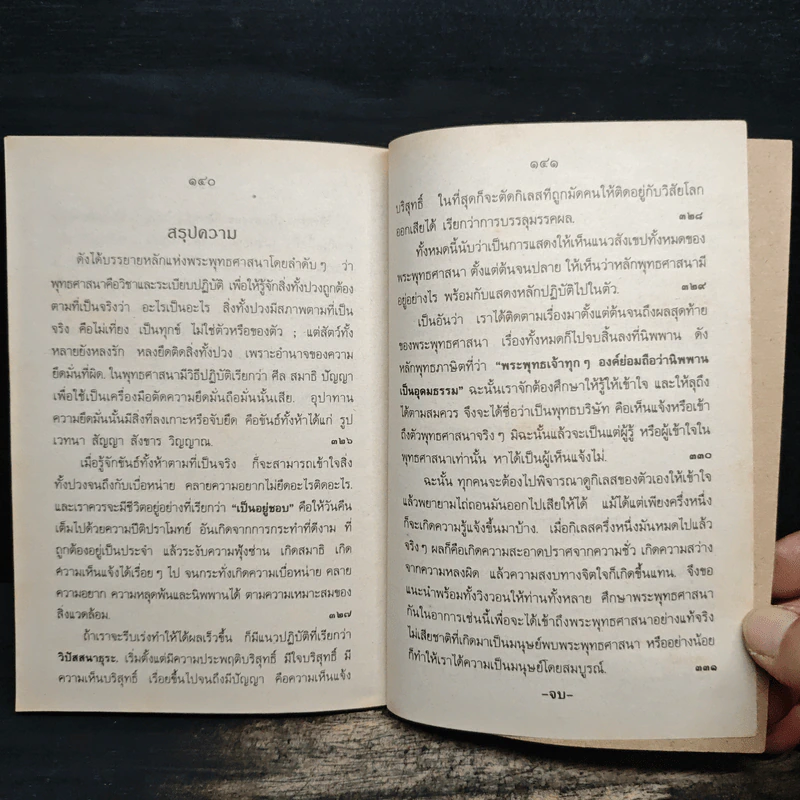 ๑๔๐
สรุปความ
ดังได้บรรยายหลักแห่งพระพุทธศาสนาโดยลำดับๆ ว่า
พุทธศาสนาคือวิชาและระเบียบปฏิบัติ เพื่อให้รู้จักสิ่งทั้งปวงถูกต้อง
ตามที่เป็นจริงว่า อะไรเป็นอะไร สิ่งทั้งปวงมีสภาพตามที่เป็น
จริง คือไม่เที่ยง เป็นทุกข์ ไม่ใช่ตัวหรือของตัว ; แต่สัตว์ทั้ง
หลายยังหลงรัก หลงยึดติดสิ่งทั้งปวง เพราะอำนาจของความ
ยึดมั่นที่ผิด. ในพุทธศาสนามีวิธีปฏิบัติเรียกว่า ศีล สมาธิ ปัญญา
เพื่อใช้เป็นเครื่องมือตัดความยึดมั่นถือมั่นนั้นเสีย. อุปาทาน
ความยึดมั่นนั้นมีสิ่งที่ลงเกาะหรือจับยึด คือขันธ์ทั้งห้าได้แก่ รูป
เวทนา สัญญา สังขาร วิญญาณ. ๓๒๖
เมื่อรู้จักขันธ์ทั้งห้าตามที่เป็นจริง ก็จะสามารถเข้าใจสิ่ง
ทั้งปวงจนถึงกับเบื่อหน่าย คลายความอยากไม่ยึดอะไรติดอะไร.
และเราควรจะมีชีวิตอยู่อย่างที่เรียกว่า “เป็นอยู่ชอบ” คือให้วันคืน
เต็มไปด้วยความปีติปราโมทย์ อันเกิดจากการกระทำที่ดีงาม ที่
ถูกต้องอยู่เป็นประจำ แล้วระงับความฟุ้งซ่าน เกิดสมาธิ เกิด
ความเห็นแจ้งได้เรื่อยๆ ไป จนกระทั่งเกิดความเบื่อหน่าย คลาย
ความอยาก ความหลุดพ้นและนิพพานได้ ตามความเหมาะสมของ
สิ่งแวดล้อม. ๓๒๗
ถ้าเราจะรีบเร่งทำให้ได้ผลเร็วขึ้น ก็มีแนวปฏิบัติที่เรียกว่า
วิปัสสนาธุระ. เริ่มตั้งแต่มีความประพฤติบริสุทธิ์ มีใจบริสุทธิ์ มี
ความเห็นบริสุทธิ์ เรื่อยขึ้นไปจนถึงมีปัญญา คือความเห็นแจ้ง
๑๔๑
บริสุทธิ์ ในที่สุดก็จะตัดกิเลสที่ผูกมัดคนให้ติดอยู่กับวิสัยโลก
ออกเสียได้ เรียกว่าการบรรลุมรรคผล. ๓๒๘
ทั้งหมดนี้นับว่าเป็นการแสดงให้เห็นแนวสังเขปทั้งหมดของ
พระพุทธศาสนา ตั้งแต่ต้นจนปลาย ให้เห็นว่าหลักพุทธศาสนามี
อยู่อย่างไร พร้อมกับแสดงหลักปฏิบัติไปในตัว. ๓๒๙
เป็นอันว่า เราได้ติดตามเรื่องมาตั้งแต่ต้นจนถึงผลสุดท้าย
ของพระพุทธศาสนา เรื่องทั้งหมดก็ไปจบสิ้นลงที่นิพพาน ดัง
หลักพุทธภาษิตที่ว่า “พระพุทธเจ้าทุกๆ องค์ย่อมถือว่านิพพาน
เป็นอุดมธรรม” ฉะนั้นเราจักต้องศึกษาให้รู้ให้เข้าใจ และให้ลุถึง
ได้ตามสมควร จึงจะได้ชื่อว่าเป็นพุทธบริษัท คือเห็นแจ้งหรือเข้า
ถึงตัวพุทธศาสนาจริงๆ มิฉะนั้นแล้วจะเป็นแต่ผู้รู้ หรือผู้เข้าใจใน
พุทธศาสนาเท่านั้น หาได้เป็นผู้เห็นแจ้งไม่. ๓๓๐
ฉะนั้น ทุกคนจะต้องไปพิจารณาดูกิเลสของตัวเองให้เข้าใจ
แล้วพยายามไถ่ถอนมันออกไปเสียให้ได้ แม้ได้แต่เพียงครึ่งหนึ่ง
ก็จะเกิดความรู้แจ้งขึ้นมาบ้าง. เมื่อกิเลสครึ่งหนึ่งมันหมดไปแล้ว
จริงๆ ผลก็คือเกิดความสะอาดปราศจากความชั่ว เกิดความสว่าง
จากความหลงผิด แล้วความสงบทางจิตใจก็เกิดขึ้นแทน. จึงขอ
แนะนำพร้อมทั้งวิงวอนให้ท่านทั้งหลาย ศึกษาพระพุทธศาสนา
กันในอาการเช่นนี้เพื่อจะได้เข้าถึงพระพุทธศาสนาอย่างแท้จริง
ไม่เสียชาติที่เกิดมาเป็นมนุษย์พบพระพุทธศาสนา หรืออย่างน้อย
ก็ทำให้เราได้ความเป็นมนุษย์โดยสมบูรณ์. ๓๓๑
–จบ–